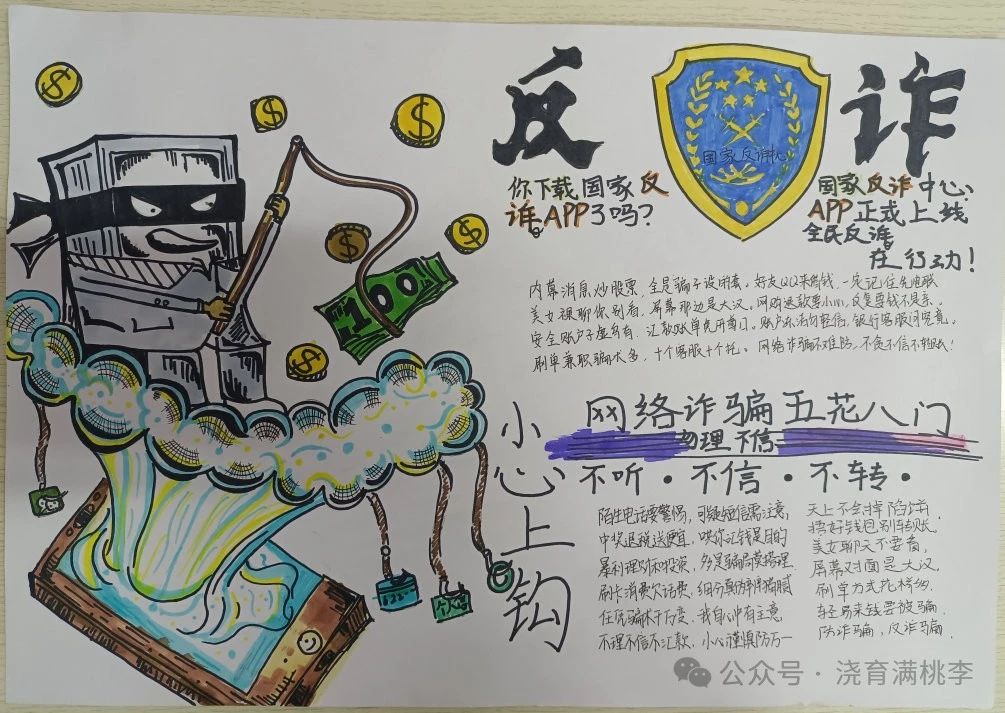 反诈
国家反诈中心
你下载国家反
诈APP了吗?
国家反诈中心
APP正式上线
全民反诈
在行动!
内幕消息炒股票,全是骗子设闭套。好友QQ来借钱,一定记住先电联
美女裸聊你别看,屏幕那边是大汉。网购退款要小心,反复要钱不是亲。
安全账户子虚乌有,让你破单
刷单兼职骗术多,十个客服十个托。网络诈骗不难防,不贪不信不转账!
小心上钩
网络诈骗五花八门
勿理 不信
不听·不信·不转·
陌生电话要警惕,可疑短信需注意,
中奖退税送便宜,哄你汇钱是目的
暴利理财和投资,多是骗局莫搭理
刷卡消费欠话费,细分真假辨猫腻
任凭骗术千万变,我自心中有主意
不理不信不汇款,小心谨慎防万一
天上不会掉陷阱
捂好钱包别转账.
美女聊天不要看,
屏幕对面是大汉
刷单方式花样多.
轻易来钱要被骗.
防诈骗,反诈骗.
100
个人信息
公众号·浇育满桃李